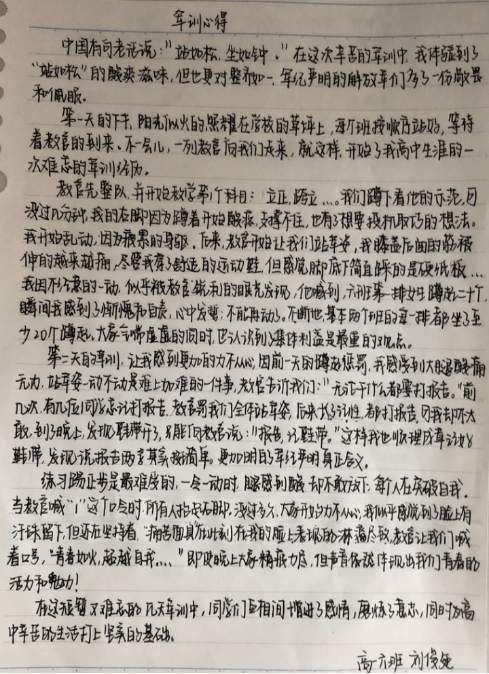 军训心得
中国有句老话说："站如松,坐如钟。"在这次辛苦的军训中,我体验到了
"站如松"的酸爽滋味,但也更对整齐如一、军纪严明的解放军们多了一份敬畏
和佩服。
第一天的下午,阳光似火的照耀在学校的草坪上,每个班按顺序站好,等待
着教官的到来。不一会儿,一列教官向我们走来,就这样,开始了我高中生涯的一
次难忘的军训经历。
教官先整队,并开始教学第1个科目：立正,跨立…。我们蹲下看他的示范,可
没过几分钟,我的左脚因为蹲着开始酸疼,支撑不住,也有了想要投机取巧的想法。
我开始乱动,因为疲累的身躯。后来,教官开始让我们站军姿,我膝盖后面的筋被
伸的越来越痛,尽管我穿了舒适的运动鞋,但感觉脚底下简直踩的是硬纸板…
我因不经意的一动,似乎被教官锐利的眼光发现,他喊到,六班第一排女生蹲起二十个,
瞬间我感到了惭愧和自责,心中发誓：不能再动了。不断地,基本两个班的每一排都坐了至
少20个蹲起。大家气喘虚虚的同时,也认识到了集体利益是最重要的观点。
第二天的军训,让我感到更加的力不从心,因前一天的蹲起惩罚,我感受到大腿酸痛
无力,站军姿一动不动是难上加难的一件事,教官告诉我们："无论干什么都要打报告。"前
几次,有几位同学忘记打报告,教官罚我们全体站军姿,后来长了记性,都打报告,可我却不太
敢,到了晚上,发现鞋带开了,只能向教官说："报告,系鞋带。"这样我也顺理成章的系
鞋带,发现说报告两字其实挺简单。更加明白了军纪严明真正含义。
练习踢正步是最难度的,一令一动时,腿感到酸却不敢放下,每个人在突破自我。
当教官喊"1"这个口令时,所有人抬起右脚,没过多久,大家开始力不从心,我似乎感觉到了脸上有
汗珠留下,但还在坚持着,"痛苦面具"在此刻在我的脸上表现的淋漓尽致,教官让我们喊
着口号,"青春如火,超越自我…"即使晚上大家精疲力尽,但声音依然体现出我们青春的
活力和魅力!
在这短暂又难忘的几天军训中,同学们互相间增进了感情,磨炼了意志,同时为高
中辛苦的生活打上坚实的基础。
高一六班 刘俊